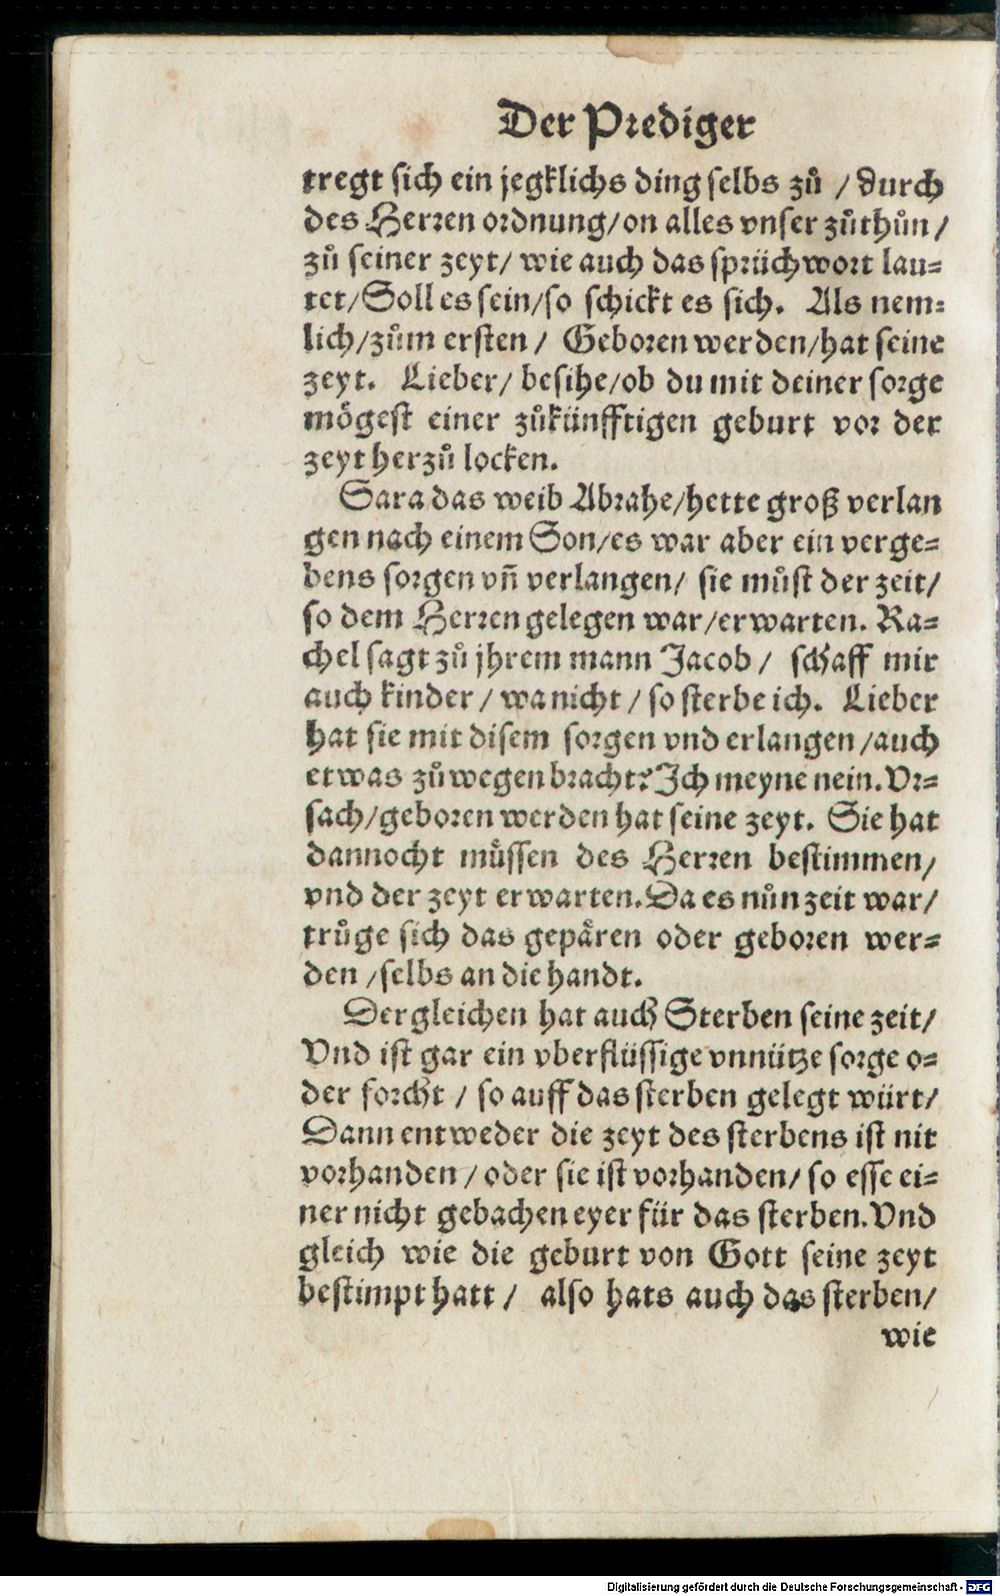 Der Prediger
tregt sich ein jegklichs ding selbs zů / durch
des Herren ordnung/on alles vnser zůthůn/
zů seiner zeyt/ wie auch das sprüchwort lau=
tet/Soll es sein/so schickt es sich. Als nem=
lich/zům ersten / Geboren werden/hat seine
zeyt. Lieber/ besihe/ob du mit deiner sorge
mögest einer zůkünfftigen geburt vor der
zeyt herzů locken.
Sara das weib Abrahe/hette groß verlan
gen nach einem Son/es war aber ein verge=
bens sorgen vn̄ verlangen/ sie můst der zeit/
so dem Herren gelegen war/erwarten. Ra=
chel sagt zů jhrem mann Jacob / schaff mir
auch kinder / wa nicht / so sterbe ich. Lieber
hat sie mit disem sorgen vnd erlangen /auch
etwas zů wegen bracht? Ich meyne nein. Vr=
sach/geboren werden hat seine zeyt. Sie hat
dannocht müssen des Herren bestimmen/
vnd der zeyt erwarten. Da es nůn zeit war/
trůge sich das gepären oder geboren wer=
den /selbs an die handt.
Dergleichen hat auch Sterben seine zeit/
Vnd ist gar ein vberflüssige vnnütze sorge o=
der forcht / so auff das sterben gelegt würt/
Dann entweder die zeyt des sterbens ist nit
vorhanden / oder sie ist vorhanden/ so esse ei=
ner nicht gebachen eyer für das sterben. Vnd
gleich wie die geburt von Gott seine zeyt
bestimpt hatt / also hats auch das sterben/
wie
Digitalisierung gefördert durch die Deutsche Forschungsgemeinschaft - DFG